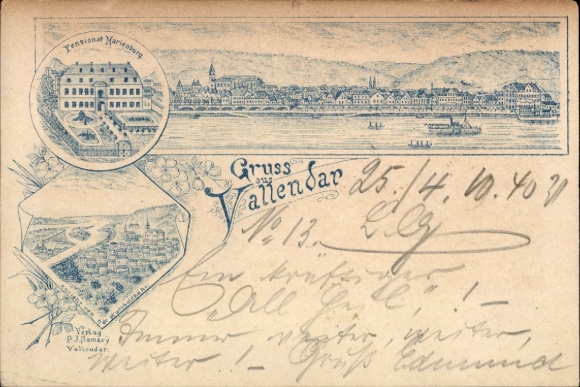 Pensionat Marienburg
Gruss
aus
Vallendar
25./4.
No 13.
Ein kräftiger
„All Heil“, ! –
Immer weiter, weiter,
weiter ! – Gruß Edmund
Verlag
P.J. Samary
Vallendar.